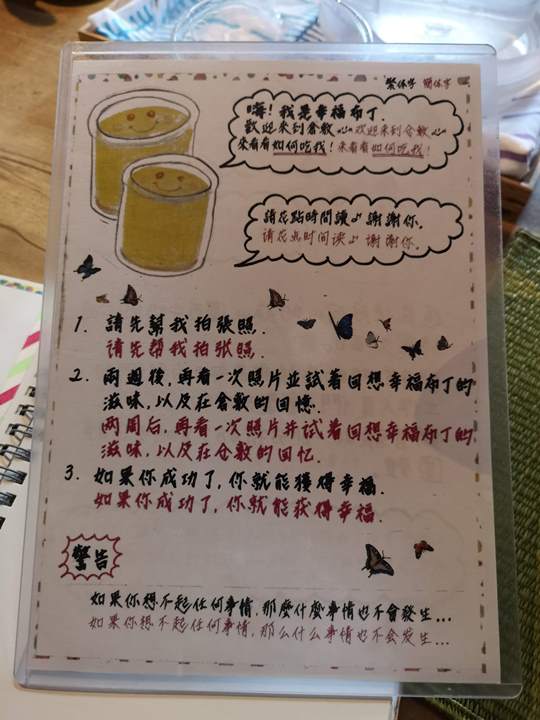 繁体字 簡体字
嗨! 我是幸福布丁.
歡迎來到倉敷♪ 欢迎来到仓敷♪
來看看如何吃我! 来看看如何吃我!
請花點時間讀♪ 謝謝你.
请花点时间读♪ 谢谢你.
1. 請先幫我拍張照.
请先帮我拍张照.
2. 兩週後,再看一次照片並試着回想幸福布丁的
滋味,以及在倉敷的回憶.
两周后,再看一次照片并试着回想幸福布丁的
滋味,以及在仓敷的回忆.
3. 如果你成功了,你就能獲得幸福.
如果你成功了,你就能获得幸福.
警告
如果你想不起任何事情,那麼什麼事情也不會發生...
如果你想不起任何事情,那么什么事情也不会发生...